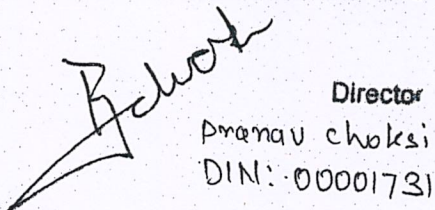 Director
Pranav Choksi
DIN: 00001731